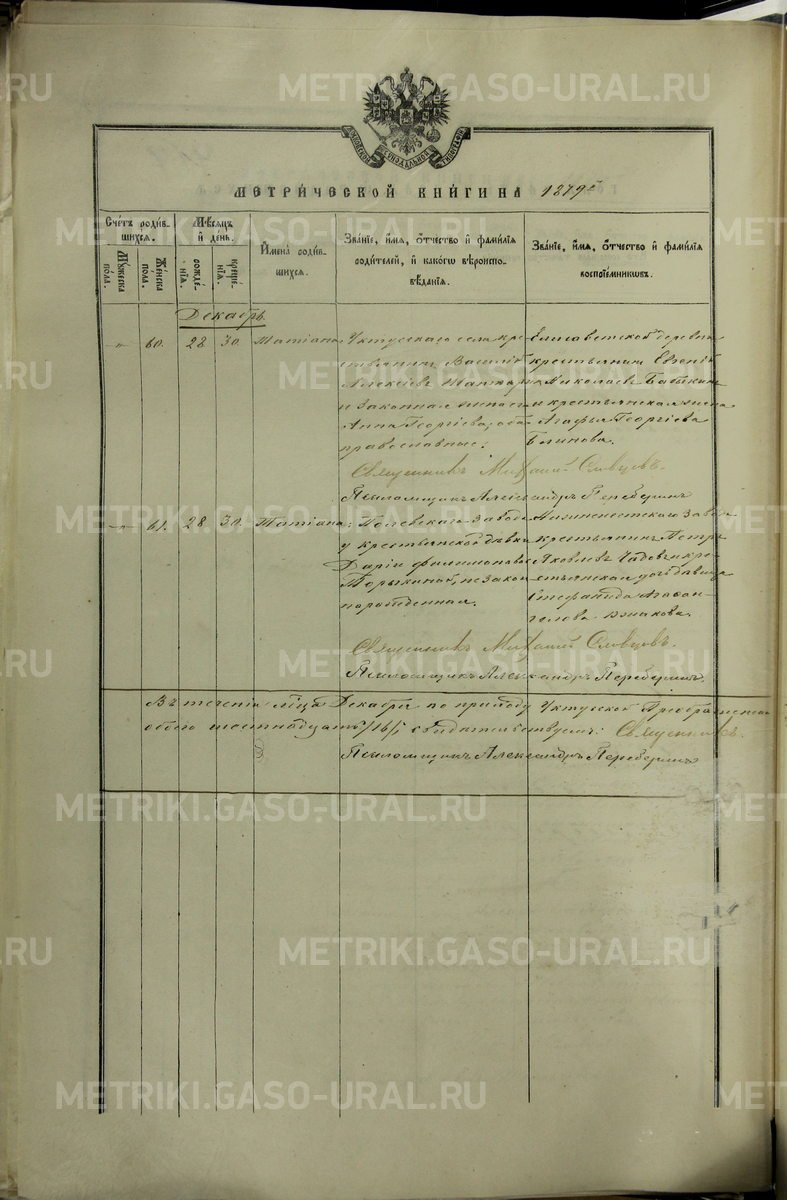 МЕТРИЧЕСКОЙ КНИГИ НА 1879 г
Счетъ родив-
шихся.
Мужеска пола.
Женска пола.
Мѣсяцъ и день.
рожде-
нія.
креще-
нія.
Имена родив-
шихся.
Званіе, имя, отчество и фамилія
родителей, и какого вѣроиспо-
вѣданія.
Званіе, имя, отчество и фамилія
воспріемниковъ.
Декабрь
" 60. 28 30. Татіана
Уктусскаго села кре-
стьянинъ Василій
Алексѣевъ
и законная жена его
Анна Георгіева, оба
православные.
Елисаветской деревни
крестьянинъ Евгеній
Николаевъ Бабыкинъ
и крестьянская жена
Агафья Георгіева
Блинова.
Священникъ Михаилъ Словцовъ.
Псаломщикъ Александръ Переберинъ
" 61. 28 30. Татіана
Полевскаго завода
у крестьянской дѣвки
Даріи Филимоновой
незакон-
норожденная.
Нижнеисетскаго завода
крестьянинъ Петръ
Яковлевъ и кре-
стьянская дочь дѣвица
Стефанида Агафан-
гелова
Священникъ Михаилъ Словцовъ.
Псаломщикъ Александръ Переберинъ.
Въ теченіи мца Декабря по приходу Уктусской Преображенской
обоего шестнадцать /16/, свидѣтельствуемъ: Священникъ.
Псаломщикъ Александръ Переберинъ
METRIKI.GASO-URAL.RU